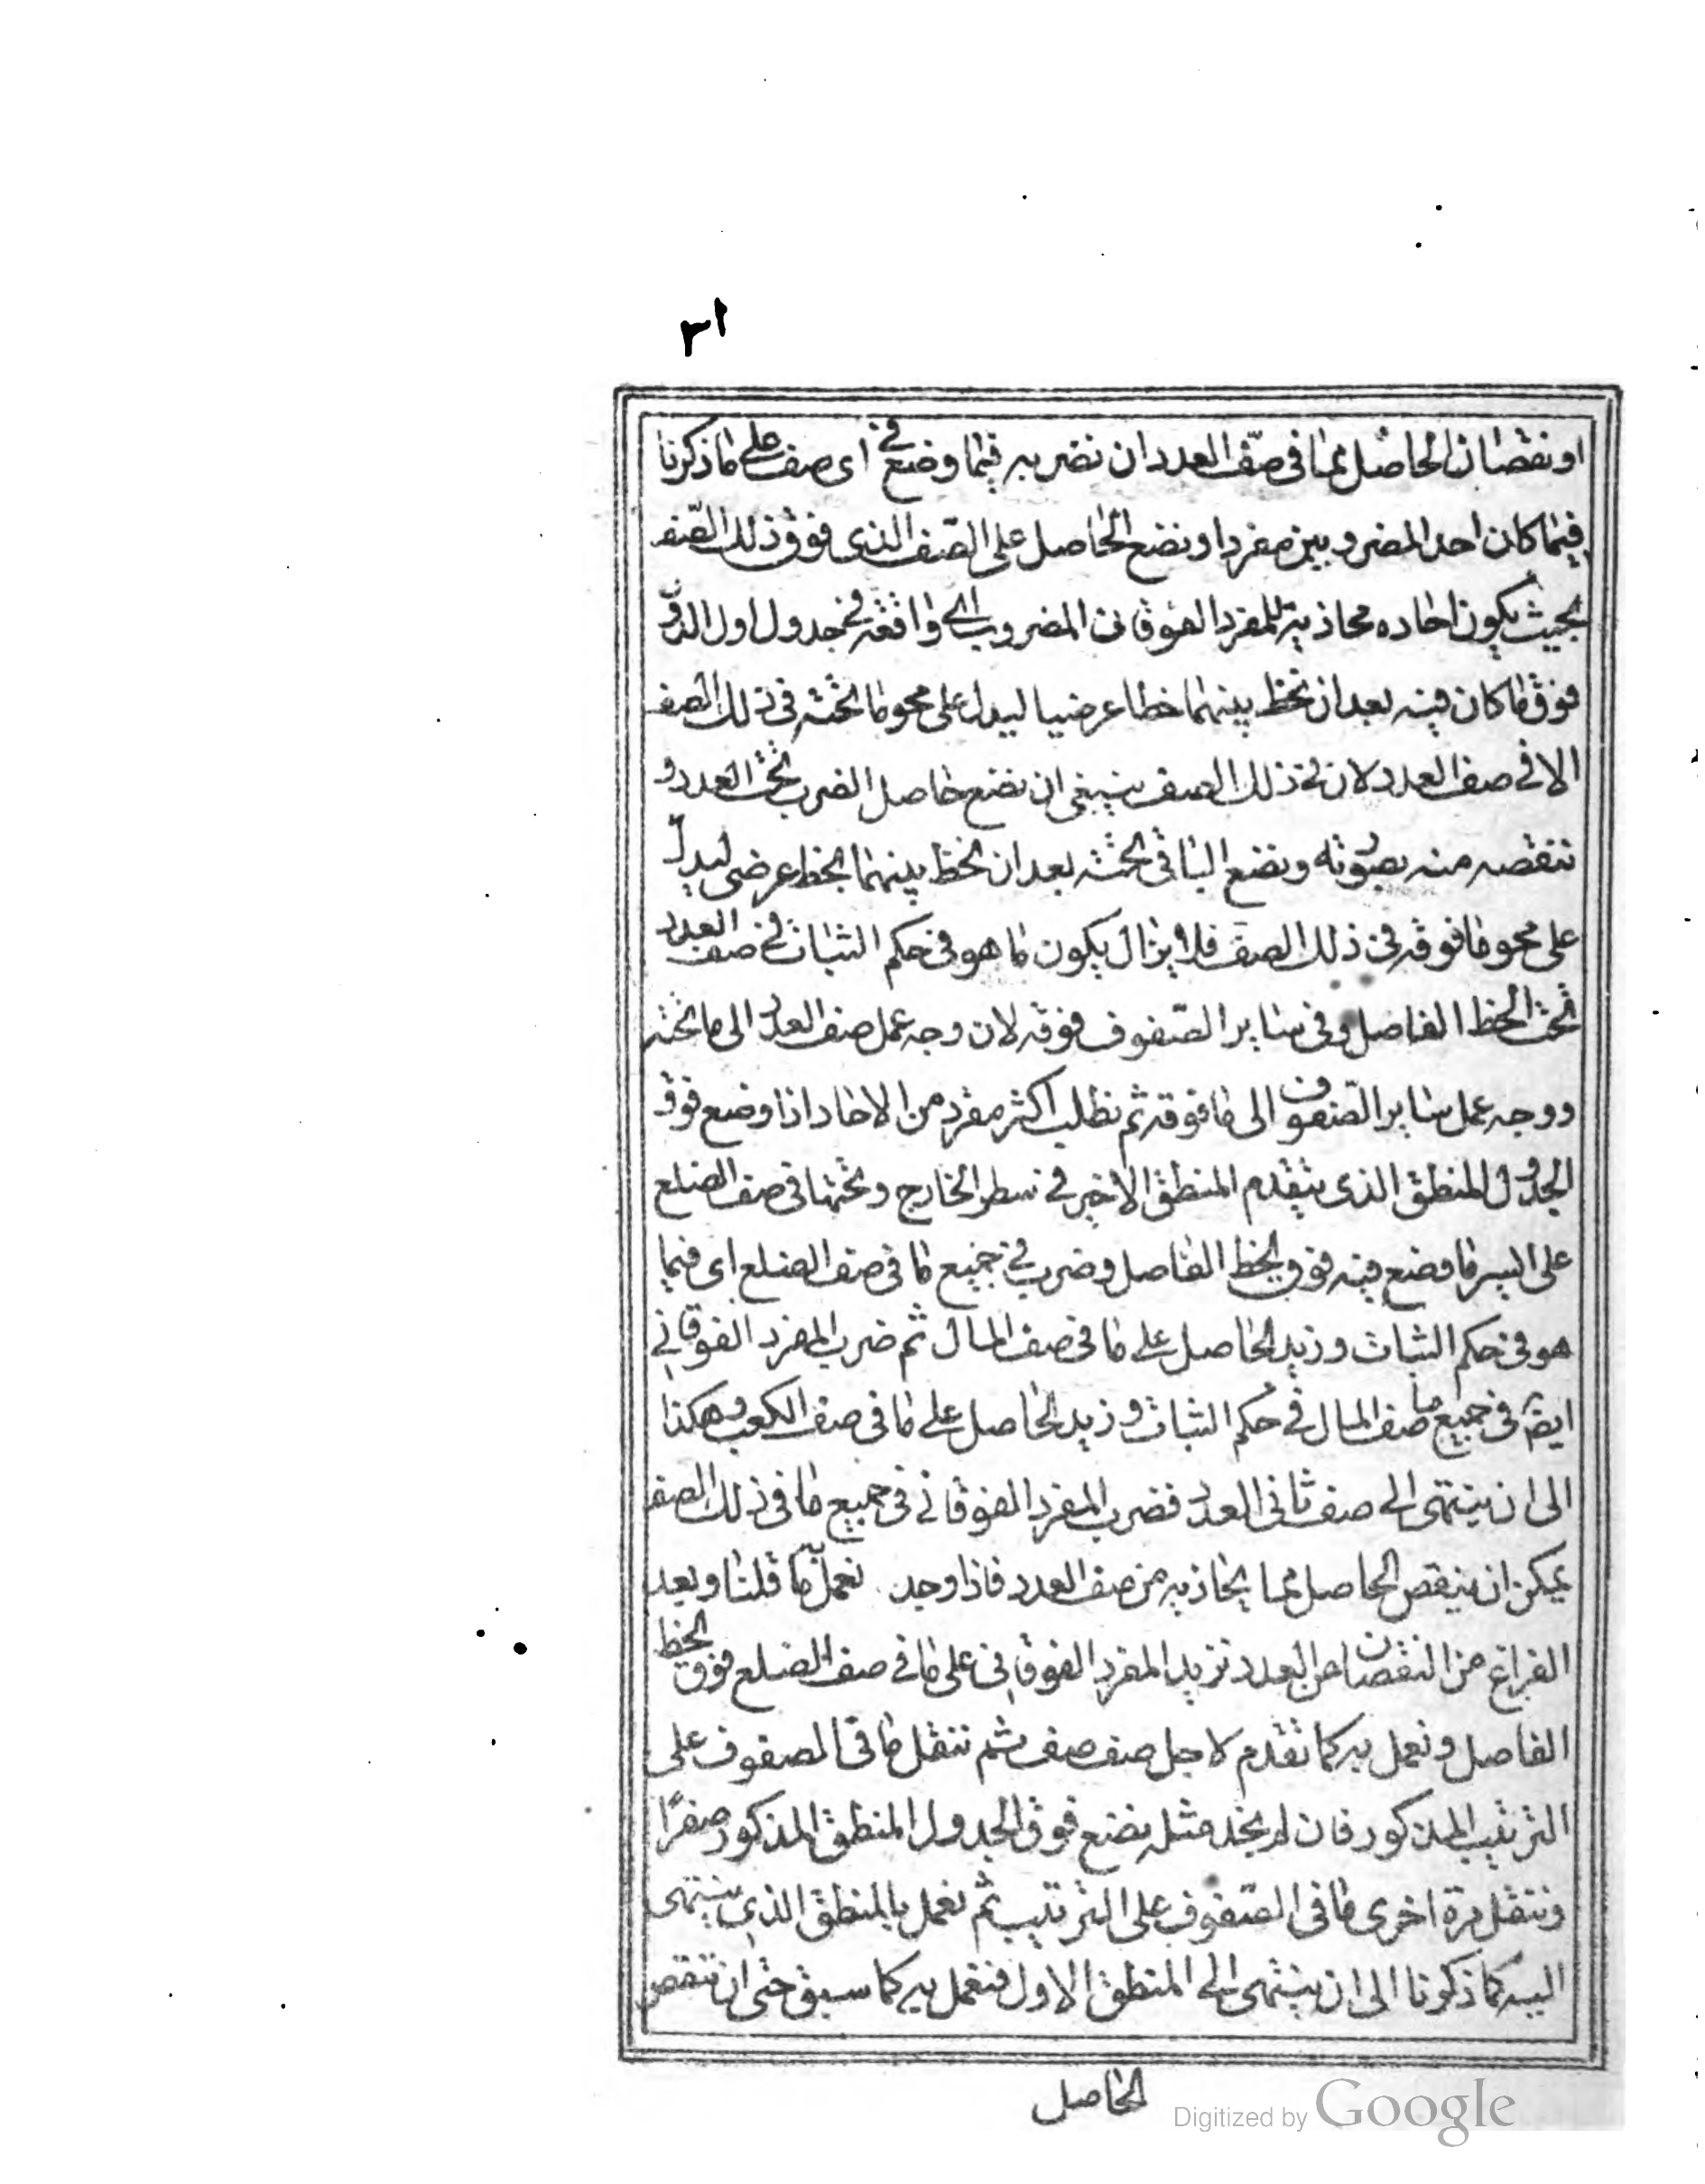 ٣١
او نقصان الحاصل مما فى صف العدد ان نضربه فيما وضع فى اى صف على ما ذكرنا
فيما كان احد المضروبين مفردا و نضع الحاصل على الصف الذى فوق ذلك الصف
بحيث يكون احاده محاذية للمفرد الفوقانى المضروب الى واقعه فى جدول اول الدور
فوق ما كان فيه بعد ان نخط بينهما خطا عرضيا ليدل على محو ما تحته فى ذلك الصف
الا فى صف العدد لان فى ذلك الصف ينبغى ان نضع حاصل الضرب تحت العدد و
ننقصه منه بصورته و نضع الباقى تحته بعد ان نخط بينهما بخط عرضى ليدل
على محو ما فوقه فى ذلك الصف فلا يزال يكون ما هو فى حكم الثبات فى صف العدد
تحت الخط الفاصل و فى ساير الصفوف فوقه لان وجه عمل صف العدد الى ما تحته
و وجه عمل ساير الصفوف الى ما فوقه ثم نطلب اكثر مفرد من الاحاد اذا وضع فوق
الجدول المنطق الذى يتقدم المنطق الاخير فى سطر الخارج و تحتها فى صف الضلع
على اليسر ما وضع فيه فوق الخط الفاصل و ضرب فى جميع ما فى صف الضلع اى فيما
هو فى حكم الثبات و زيد الحاصل على ما فى صف المال ثم ضرب المفرد الفوقانى
ايضا فى جميع ما صف المال فى حكم الثبات و زيد الحاصل على ما فى صف الكعب و هكذا
الى ان ينتهى الى صف ثانى العدد فضرب المفرد الفوقانى فى جميع ما فى ذلك الصف
يمكن ان ينقص الحاصل مما يحاذيه من صف العدد فاذا وجد نعمل به ما قلنا و بعد
الفراغ من النقصان عن العدد نزيد المفرد الفوقانى على ما فى صف الضلع فوق الخط
الفاصل و نعمل به كما تقدم لاجل صف صف ثم ننقل ما فى المصفوف على
الترتيب المذكور فان لم نجد مثله نضع فوق الجدول المنطق المذكور صفرًا
و ننقل مرة اخرى ما فى الصفوف على الترتيب ثم نعمل بالمنطق الذى ينتهى
اليه كما ذكرنا الى ان ينتهى الى المنطق الاول فنعمل به كما سبق حتى ان ننقص
الحاصل
Digitized by Google